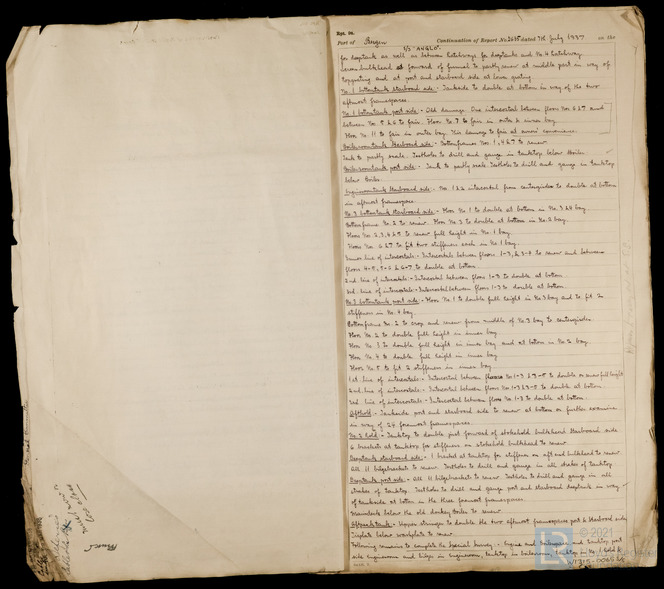 Rpt. 9a.
Port of Bergen Continuation of Report No. 2635 dated 7th July 1937 on the
S/S "ANGLO".
for deeptank as well as between hatchways for deeptank and No. 4 hatchway
screen bulkhead forward of funnel to partly renew at middle part in way of
topgrating and at port and starboard side at lower grating.
No. 1 bottomtank starboard side:- Tankside to double at bottom in way of the two
aftmost framespaces.
No. 1 bottomtank port side:- Old damage. One intercostal between floors Nos 6 & 7 and
between Nos. 5 & 6 to fair. Floor No. 7 to fair in outer & inner bay.
Floor No. 11 to fair in outer bay. This damage to fair at owners' convenience.
Boilerroomtank starboard side:- Bottomframes Nos. 1, 4 & 7 to renew.
Tank to partly scale. Testholes to drill and gauge in tanktop below boiler.
Boilerroomtank port side:- Tank to partly scale. Testholes to drill and gauge in tanktop
below boiler.
Engineroomtank starboard side:- No. 1 & 2 intercostal from centregirder to double at bottom
in aftmost framespace.
No. 3 bottomtank starboard side:- Floor No. 1 to double at bottom in No. 3 & 4 bay.
Bottomframe No. 2 to renew. Floor No. 3 to double at bottom in No. 2 bay.
Floors Nos. 2, 3, 4 & 5 to renew full height in No. 1 bay.
Floors Nos. 6 & 7 to fit two stiffeners each in No. 1 bay.
Inner line of intercostals:- Intercostals between floors 1-3, & 3-4 to renew and between
floors 4-5, 5-6 & 6-7 to double at bottom.
2nd. line of intercostals:- Intercostals between floors 1-3 to double at bottom.
3rd. line of intercostals:- Intercostals between floors 1-3 to double at bottom.
No. 3 bottomtank port side:- Floor No. 1 to double full height in No. 3 bay and to fit 2
stiffeners in No. 4 bay.
Bottomframe No. 2 to crop and renew from middle of No. 3 bay to centregirder.
Floor No. 2 to double full height in inner bay.
Floor No. 3 to double full height in inner bay and at bottom in No. 2 bay.
Floor No. 4 to double full height in inner bay.
Floor No. 5 to fit 2 stiffeners in inner bay.
1st line of intercostals:- Intercostal between floors Nos 1-3 & 3-5 to double or renew full height
2nd. line of intercostals:- Intercostal between floors Nos 1-3 & 3-5 to double at bottom.
3rd line of intercostals:- Intercostals between floors Nos 1-3 to double at bottom.
Afthold:- Tankside port and starboard side to renew at bottom or further examine
in way of 24 foremost framespaces.
No. 2 hold:- Tanktop to double just forward of stokehold bulkhead starboard side
6 brackets at tanktop for stiffeners on stokehold bulkhead to renew.
Deeptank starboard side:- 1 bracket at tanktop for stiffener on aft end bulkhead to renew
All 11 bilgebrackets to renew. Testholes to drill and gauge in all strakes of tanktop.
Deeptank port side:- All 11 bilgebrackets to renew. Testholes to drill and gauge in all
strakes of tanktop. Testholes to drill and gauge port and starboard deeptank in way
of tankside at bottom in the three foremost framespaces.
Mainsteels below the old donkey boiler to renew.
Afterpeaktank:- Upper stringer to double the two aftmost framespaces port & starboard side
Topplate below workplate to renew.
Following remains to complete the Special Survey:- Engine and tanktop port
side engineroom and bilge in engineroom, tanktop in boilerroom, tanktop in No. 1 hold &
© 2021